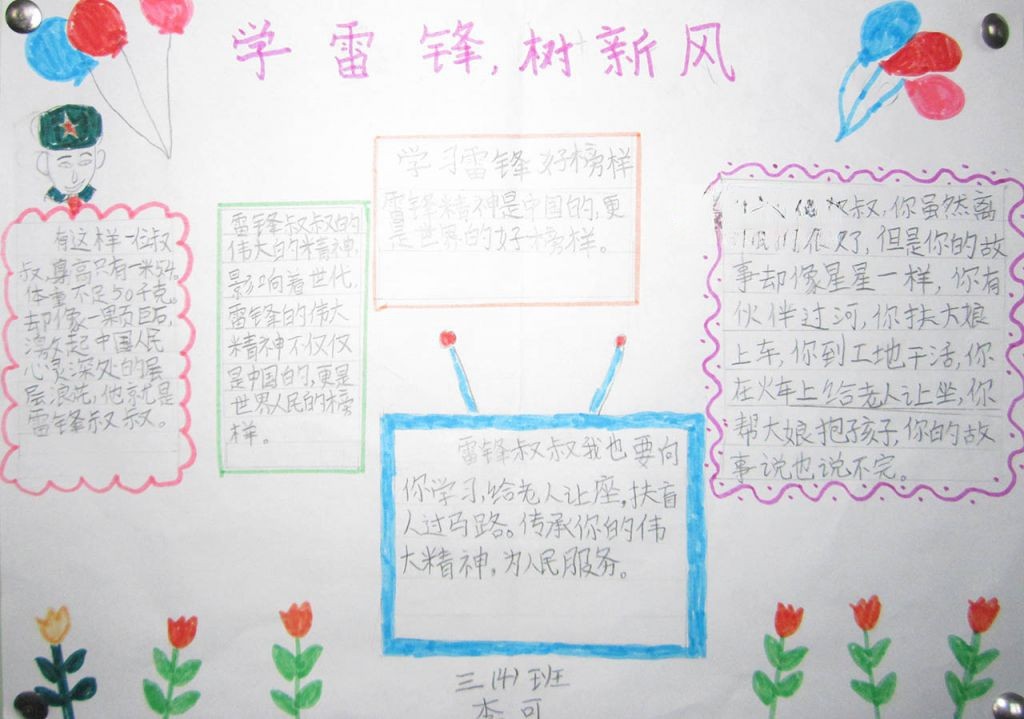 学雷锋,树新风
有这样一位叔
叔,身高只有一米54,
体重不足50千克。
却像一颗巨石,
激起中国人民
心灵深处的层
层浪花,他就是
雷锋叔叔。
雷锋叔叔的
伟大的精神,
影响着世代,
雷锋的伟大
精神不仅仅
是中国的,更是
世界人民的榜
样。
学习雷锋好榜样
雷锋精神是中国的,更
是世界的好榜样。
叔,你虽然离
但是你的故
事却像星星一样,你有
伙伴过河,你扶大娘
上车,你到工地干活,你
在火车上给老人让坐,你
帮大娘抱孩子,你的故
事说也说不完。
雷锋叔叔我也要向
你学习,给老人让座,扶盲
人过马路。传承你的伟
大精神,为人民服务。
三(4)班
李可